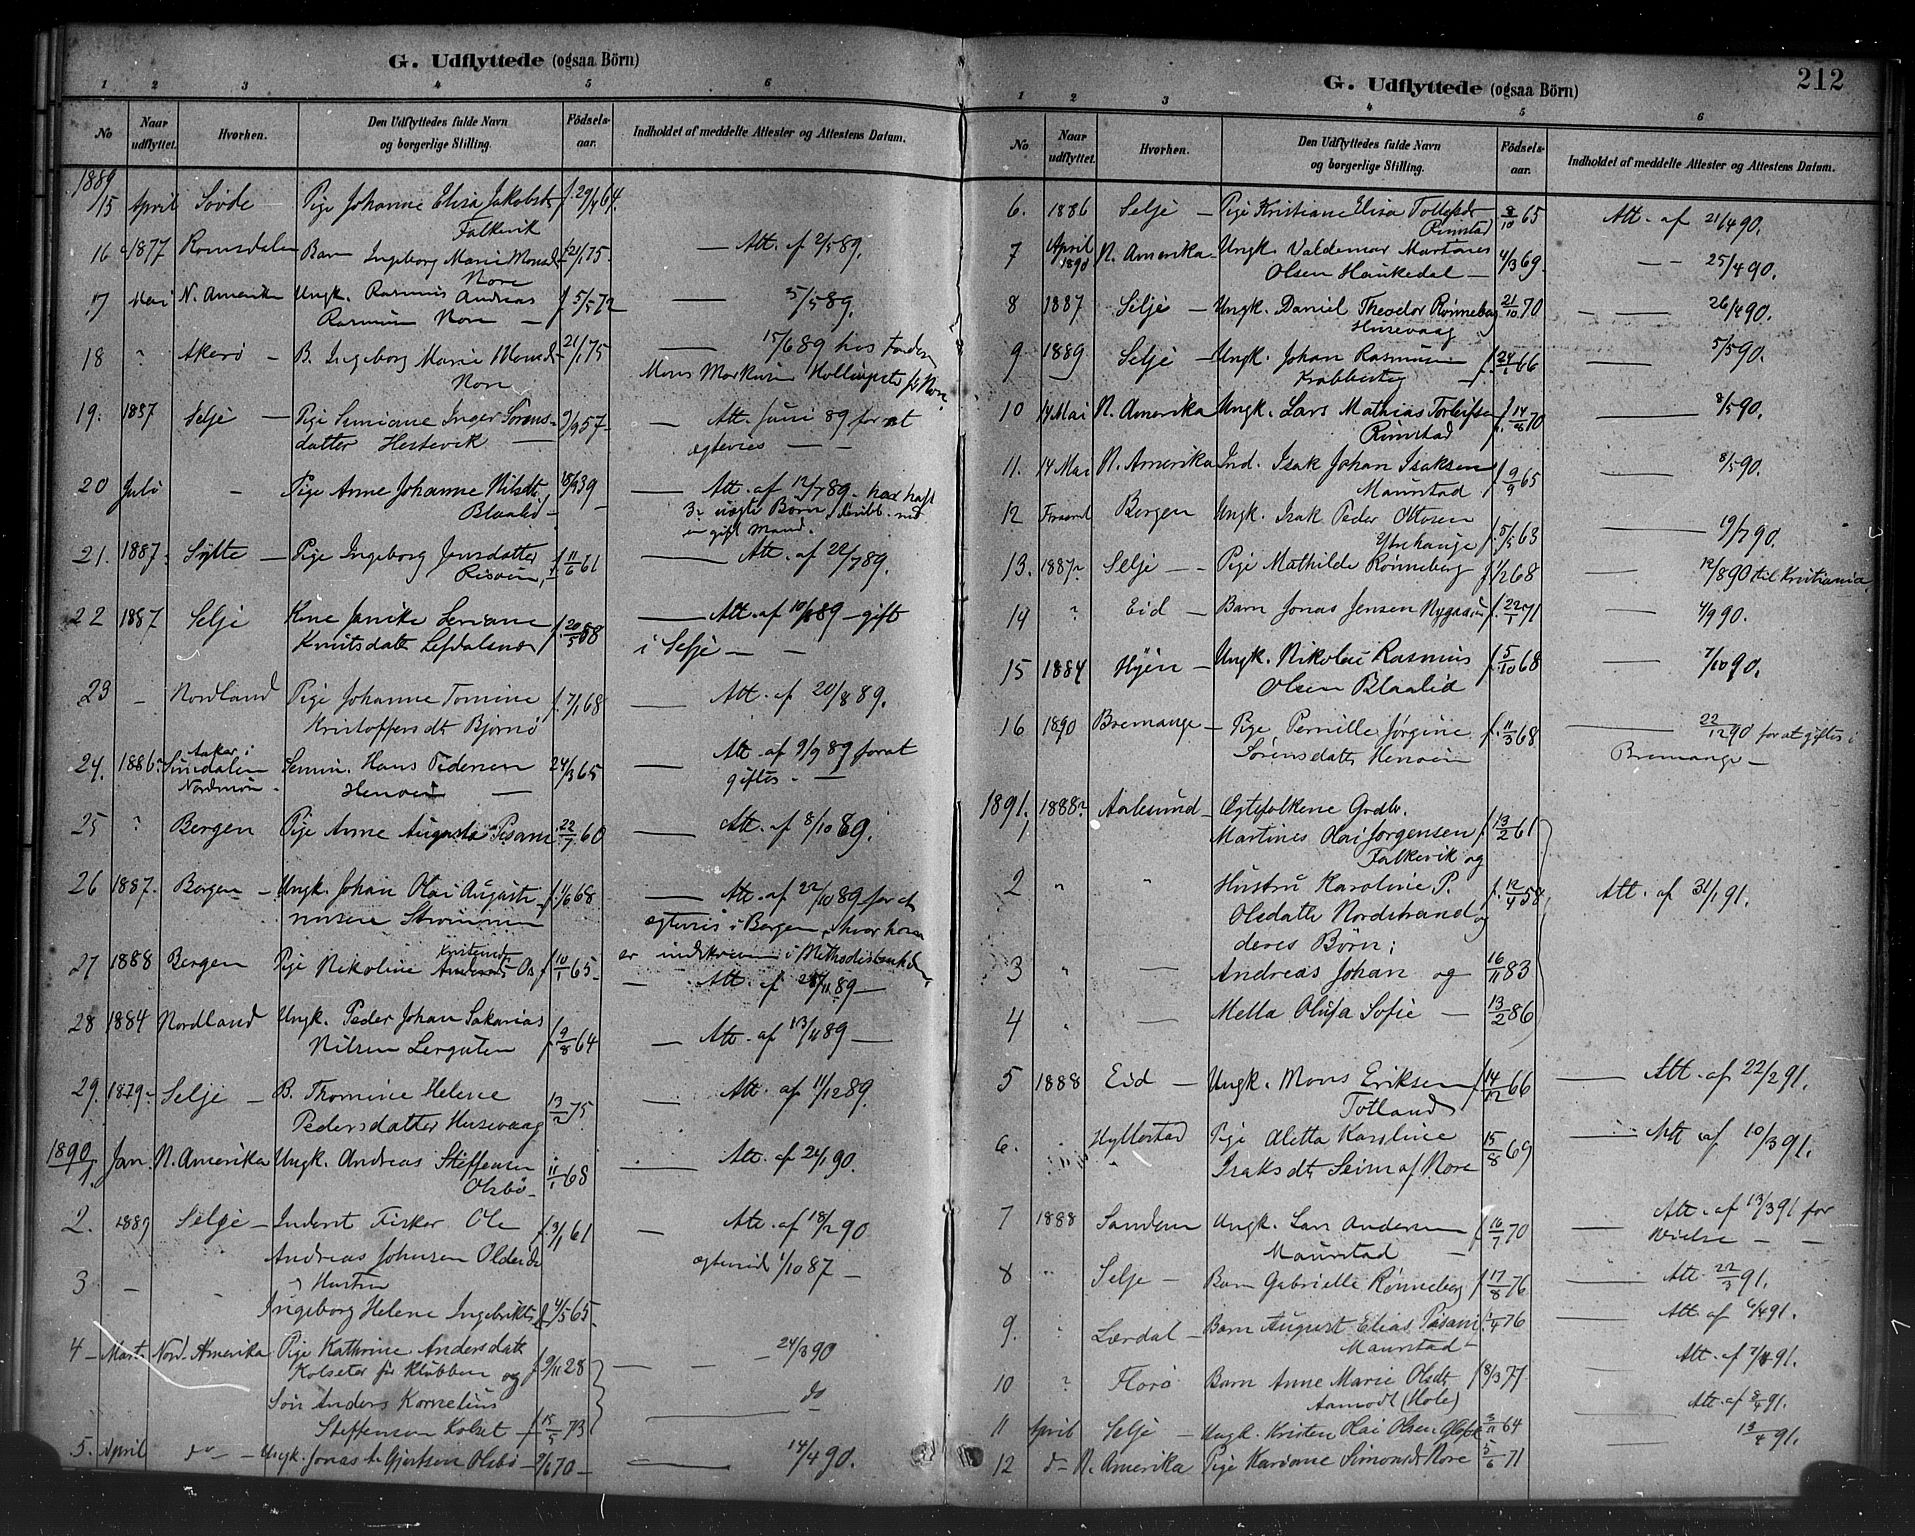 G. Udflyttede (ogsaa Börn)
1 2 3 4 5 6
No Naar udflyttet. Hvorhen. Den Udflyttedes fulde Navn og borgerlige Stilling. Födsels-aar. Indholdet af meddelte Attester og Attestens Datum.
1889
15 April Søvde Pige Johanne Elisa Jakobsdt f. 29/4 64.
Falkevik
16 1877 Romsdalen Barn Ingeborg Marie Monsdt 21/1 75 — Att. af 2/5 89.
Nore
17 Mai N. Amerika Ungk. Rasmus Andreas f 5/5 72 — 3/5 89.
Rasmusen Nore —
18 " Akerø — B. Ingeborg Marie Monsdt 21/1 75 — 15/6 89 hos Faderen
Nore Mons Markusen
19. 1887 Selje — Pige Inger Sørens- 57 — Att. Juni 89 for at
datter Hestevik — egtevies —
20 Juli — Pige Anne Johanne Nilsdt 39 — Att. af 12/7 89 – har havt
Blaalid — 3 uægte Børn
gift Mand.
21. 1887. Sylte — Pige Ingeborg Jensdatter f 11/6 61 — Att. af 22/7 89.
22 1887 Selje Kone Janike f. 20/5 — Att. af 10/8 89 – gift
Knutsdatt Lefdalsnes i Selje — —
23 — Nordland Pige Johanne Tomine f. 7/1 68 — Att. af 20/8 89.
Kristoffersdt Bjørnø
24. 1886. Semin. Hans Pedersen 24/3 65 — Att. af 9/9 89 for at
Nordmør. Henøen — giftes. —
25 " Bergen Pige Anne Augusta f. 22/7 60 — Att. af 8/10 89.
26 1887. Bergen — Ungk. Johan Olai August- f. 1/6 68 — Att. af 22/10 89 for at
Strømmen egtevies i Bergen, hvor han
27 1888 Bergen Pige Nikoline Andersdt Os f 10/1 65 er indskreven i Methodistkirken
— Att. af 89 —
28 1884 Nordland Ungk. Peder Johan Sakarias
Nilsen f 9/8 64 — Att. af 89 —
29. 1879 Selje — B. Thomine Helene 13/2 75 — Att. af 11/12 89.
Pedersdatter Husevaag
1890
1. Jan. N. Amerika Ungk. Andreas Steffensen 11/1 68 — Att. af 24/1 90.
Olsbø —
2. 1889 Selje — Inderst Fisker Ole f. 3/1 61 — Att. af 18/2 90
Andreas Johnsen egteviet 1/10 87 —
3 — Hustru
Ingeborg Helene Ingebrikts 4/5 65
4 – Mart. Nord. Amerika Pige Kathrine Andersdatt f 9/11 28 — — 24/3 90
Kolseter for Klubben og
Søn Anders Kornelius do
Steffenson Kolset — f 15/5 73 —
5. April do — Ungk. Jonas A. Gjertsen Olsbø 2/6 70 — 14/4 90.
212
G. Udflyttede (ogsaa Börn)
1 2 3 4 5 6
No Naar udflyttet. Hvorhen. Den Udflyttedes fulde Navn og borgerlige Stilling. Födsels-aar. Indholdet af meddelte Attester og Attestens Datum.
6. 1886 Selje — Pige Kristiane Elisa 8/10 65 Att. af 21/4 90.
Rimstad
7 April 1890 N. Amerika Ungk. Valdemar Martines 4/3 69. — — 25/4 90.
Olsen Haukedal —
8 1887 Selje — Ungk. Daniel Theodor Rønneberg 21/10 70 — — 26/4 90.
Husevaag
9 1889 Selje — Ungk. Johan Rasmusen f. 24/1 66 5/5 90.
Krabbestig
10 14 Mai N. Amerika Ungk. Lars Mathias Torleifsen f. 14/8 70 — 8/5 90.
Rimstad
11. 14 Mai N. Amerika Ind. Isak Johan Isaksen f 9/9 65 — 8/5 90.
Maurstad
12 Bergen Ungk. Isak Peder Ottosen f. 5/5 68 — 19/7 90.
Ytrehauge
13. 1887 Selje — Pige Mathilde Rønneberg f 1/2 68 — 12/8 90 til Kristiania
14 " Eid — Barn Jonas Jensen Nygaard f. 22/1 71 — 4/9 90.
15 1884 Hyen — Ungk. Nikolai Rasmus f 5/10 68 — 7/10 90.
Olsen Blaalid
16 1890 Bremanger — Pige Pernille Jørgine f. 11/3 68 — 22/12 90 for at giftes i
Sørensdatt Henøen Bremanger —
1891.
1 1888 Aalesund — Egtefolkene Godtr.
Martines Olai Jørgensen f 13/2 61
Falkevik og
2 " " Hustru Karoline P. f. 12/4 58 Att. af 31/1 91.
Olsdatt Nordstrand og
deres Børn:
3 " — Andreas Johan og 16/11 83
4 " — Metta Olufa Sofie — 13/2 86
5 1888 Eid — Ungk. Mons Eriksen f 14/12 66 — Att. af 22/2 91.
Totland
6. " Hyllestad Pige Aletta Karoline 15/8 69 — Att af 10/3 91.
Isaksdt Seim af Nore
7 1888 Sandene Ungk. Lars Andersen 16/7 70 — Att. af 13/3 91 for
Maurstad — Vielse — —
8 " Selje — Barn Gabrielle Rønneberg f 17/8 76 — Att. 22/3 91.
9. " Lærdal — Barn August Elias 1/4 76 — Att af 6/4 91.
Maurstad
10 ? Florø Barn Anne Marie Olsdt f 8/3 77 — Att. af 7/4 91.
Aamodt (Hole)
11 April Selje — Ungk. Kristen Olai Olsen 3/11 64 — Att. af 8/4 91.
12 d— N. Amerika Pige Kariane Simonsdt Nore 5/6 71 — 13/4 91.